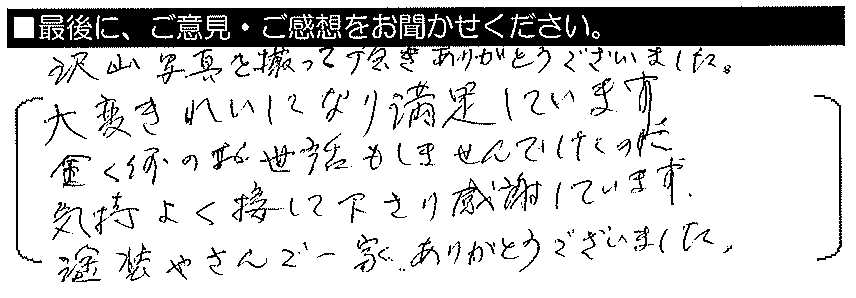 ■最後に、ご意見・ご感想をお聞かせください。
沢山写真を撮って頂きありがとうございました。
大変きれいになり満足しています
全く何のお世話もしませんでしたのに
気持よく接して下さり感謝しています。
塗装やさんで一家。ありがとうございました。